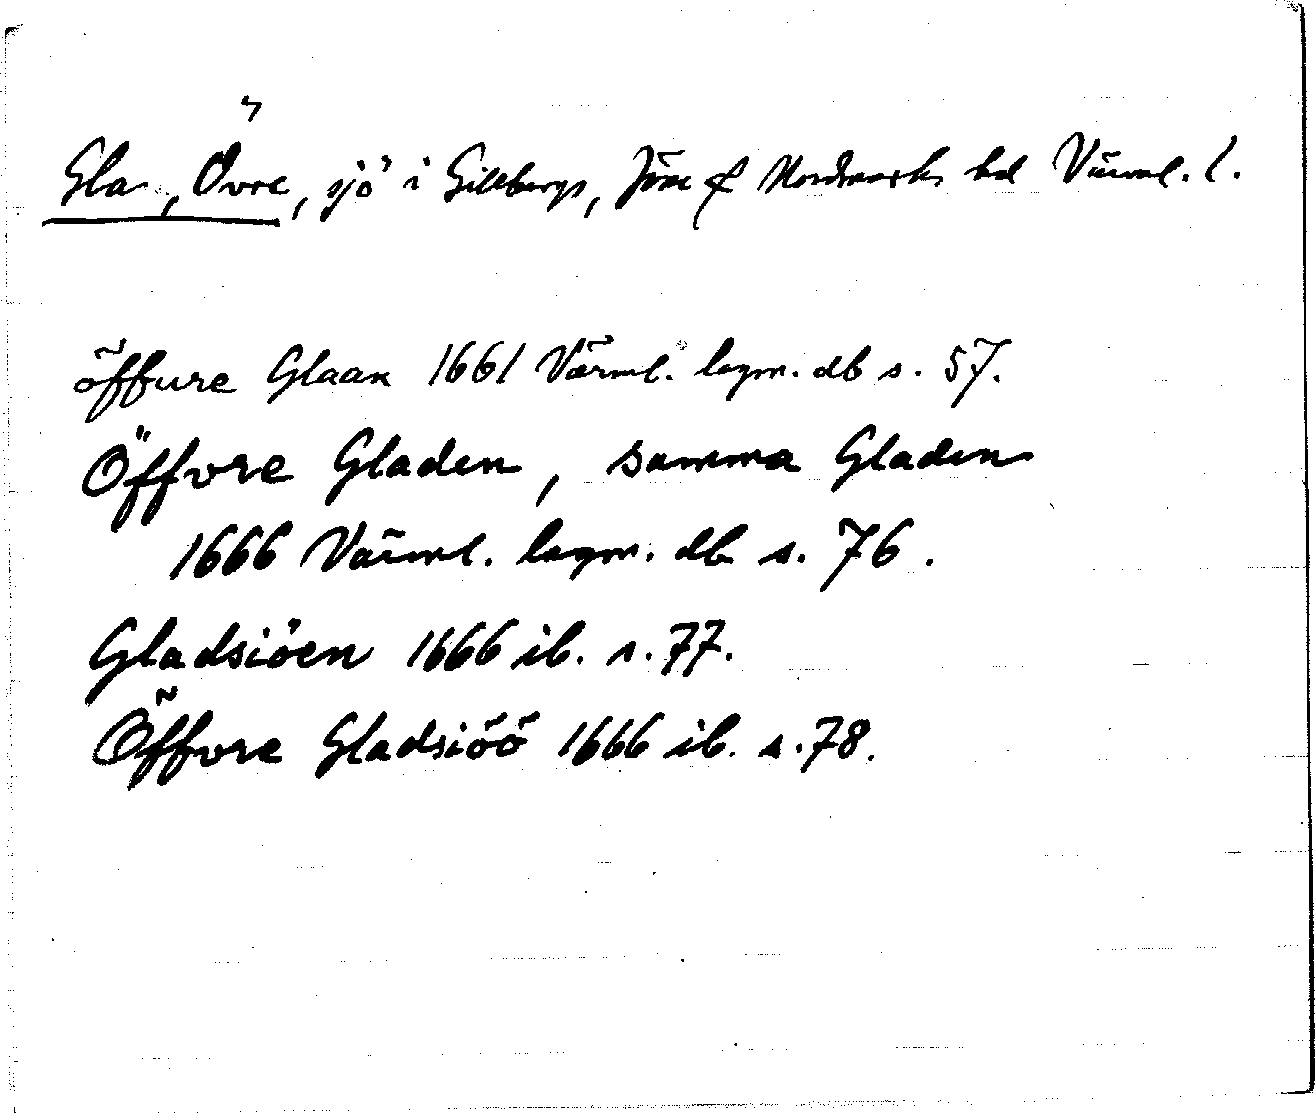 Gla, Övre, sjö i Gillbergs, Jösse & Nordmarks hd Värml. l.
öffure Glaan 1661 Värml. lagm. db s. 57.
Öffvre Gladen, samma Gladen
1666 Värml. lagm. db s. 76.
Gladsiöen 1666 ib. s. 77.
Öffvre Gladsiöö 1666 ib. s. 78.